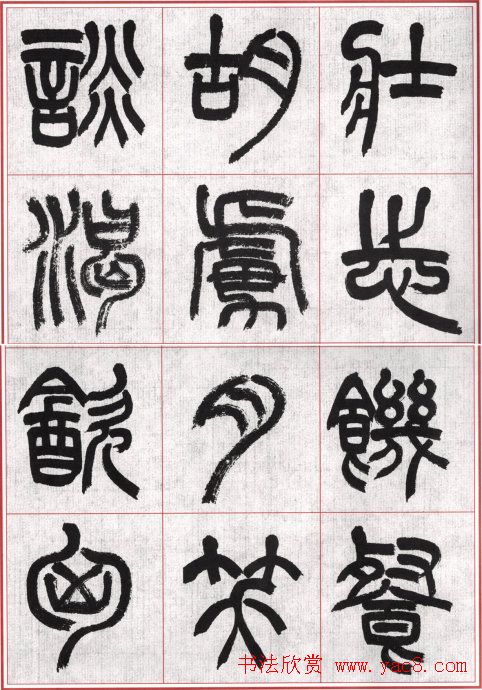 壯志饑餐
胡虜肉笑
談渴飲匈
书法欣赏 www.yac8.com